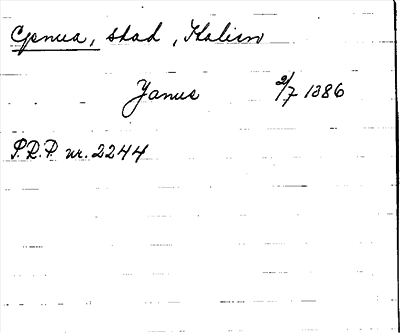 Genua, stad, Italien
Yanus 2/7 1386
P.R.P. nr. 2244